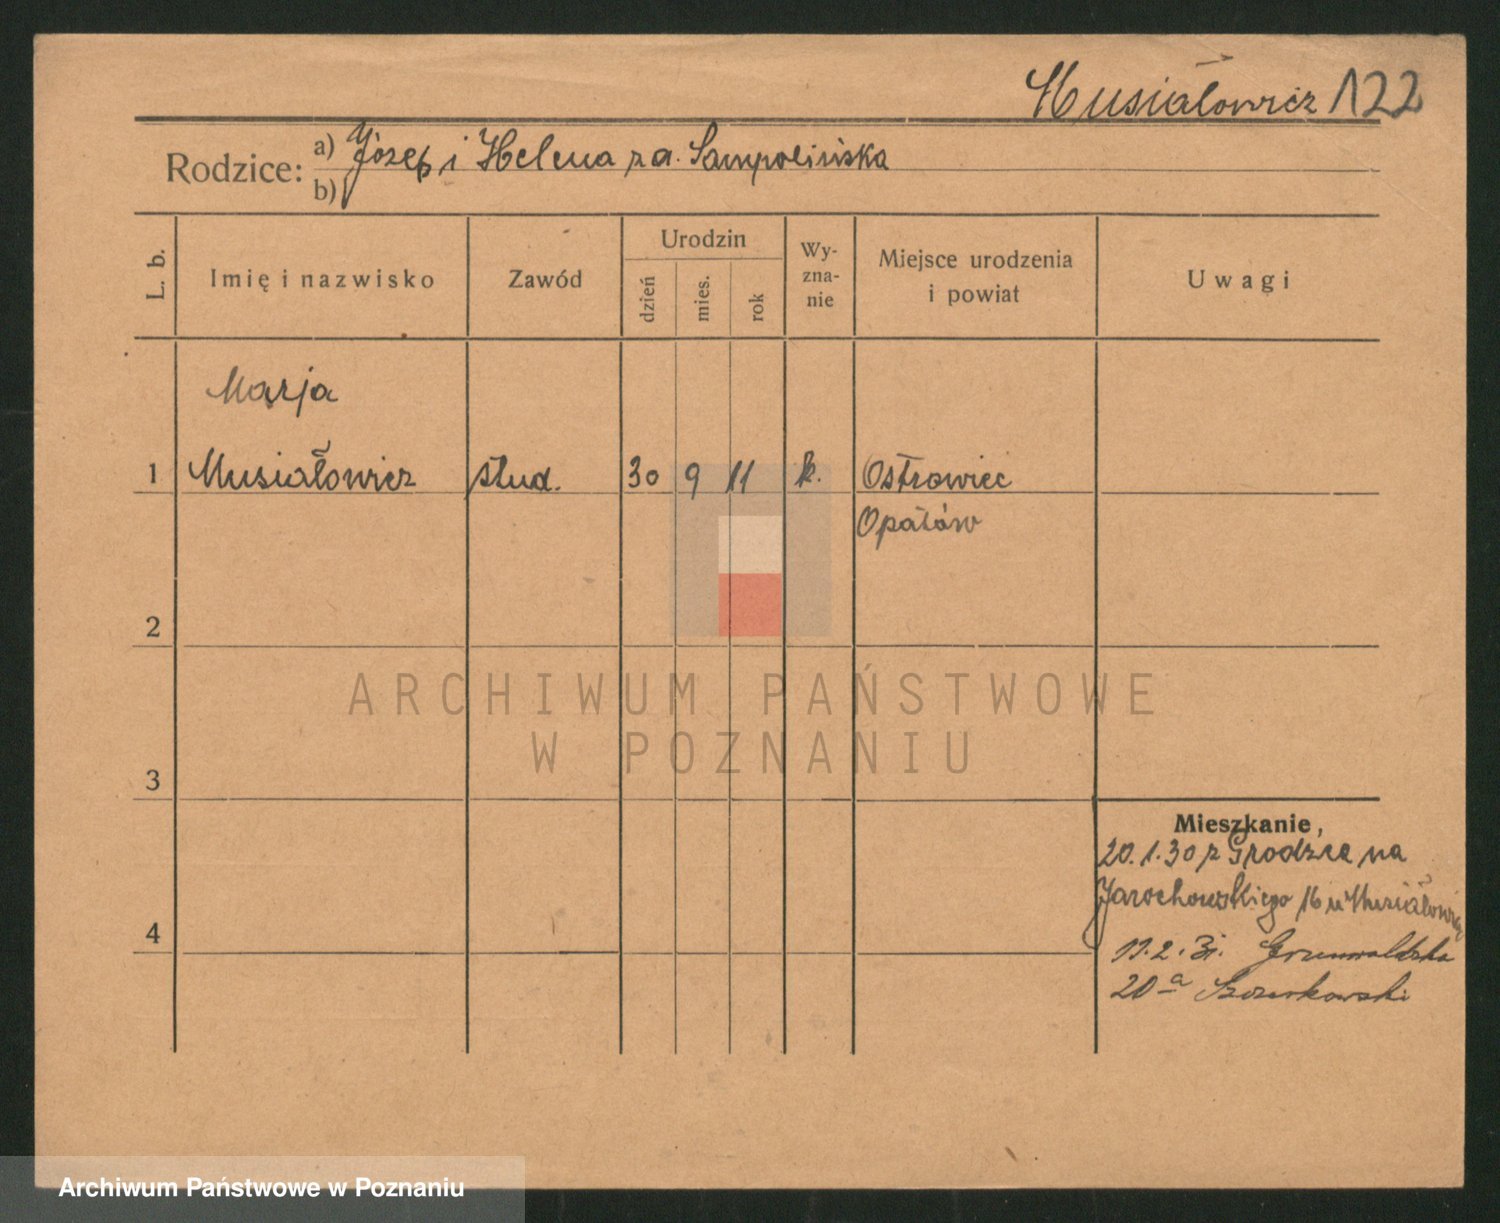 Musiałowicz 122
Rodzice: a) Józef i Helena z d. Sampolińska
b)
L. b.
Imię i nazwisko
Zawód
Urodzin
dzień
mies.
rok
Wy-
zna-
nie
Miejsce urodzenia
i powiat
Uwagi
Marja
1 Musiałowicz stud. 30 9 11 k. Ostrowiec
Opatów
2
3
4
ARCHIWUM PAŃSTWOWE
W POZNANIU
Mieszkanie,
20.1.30 z Grodzca na
Jarochowskiego 16 u Musiałowicz
11.2.31. Grunwaldzka
20a
Archiwum Państwowe w Poznaniu